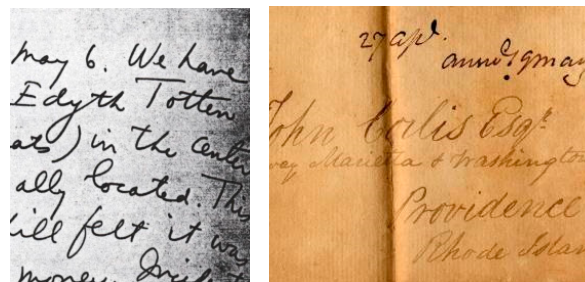 may 6. We have
Edyth Totten
ats) in the center
ally located. This
ill felt it was
money.
27 apl.
ansd 19 may
John Corlis Esqr.
Marietta & Washington
Providence
Rhode Islan